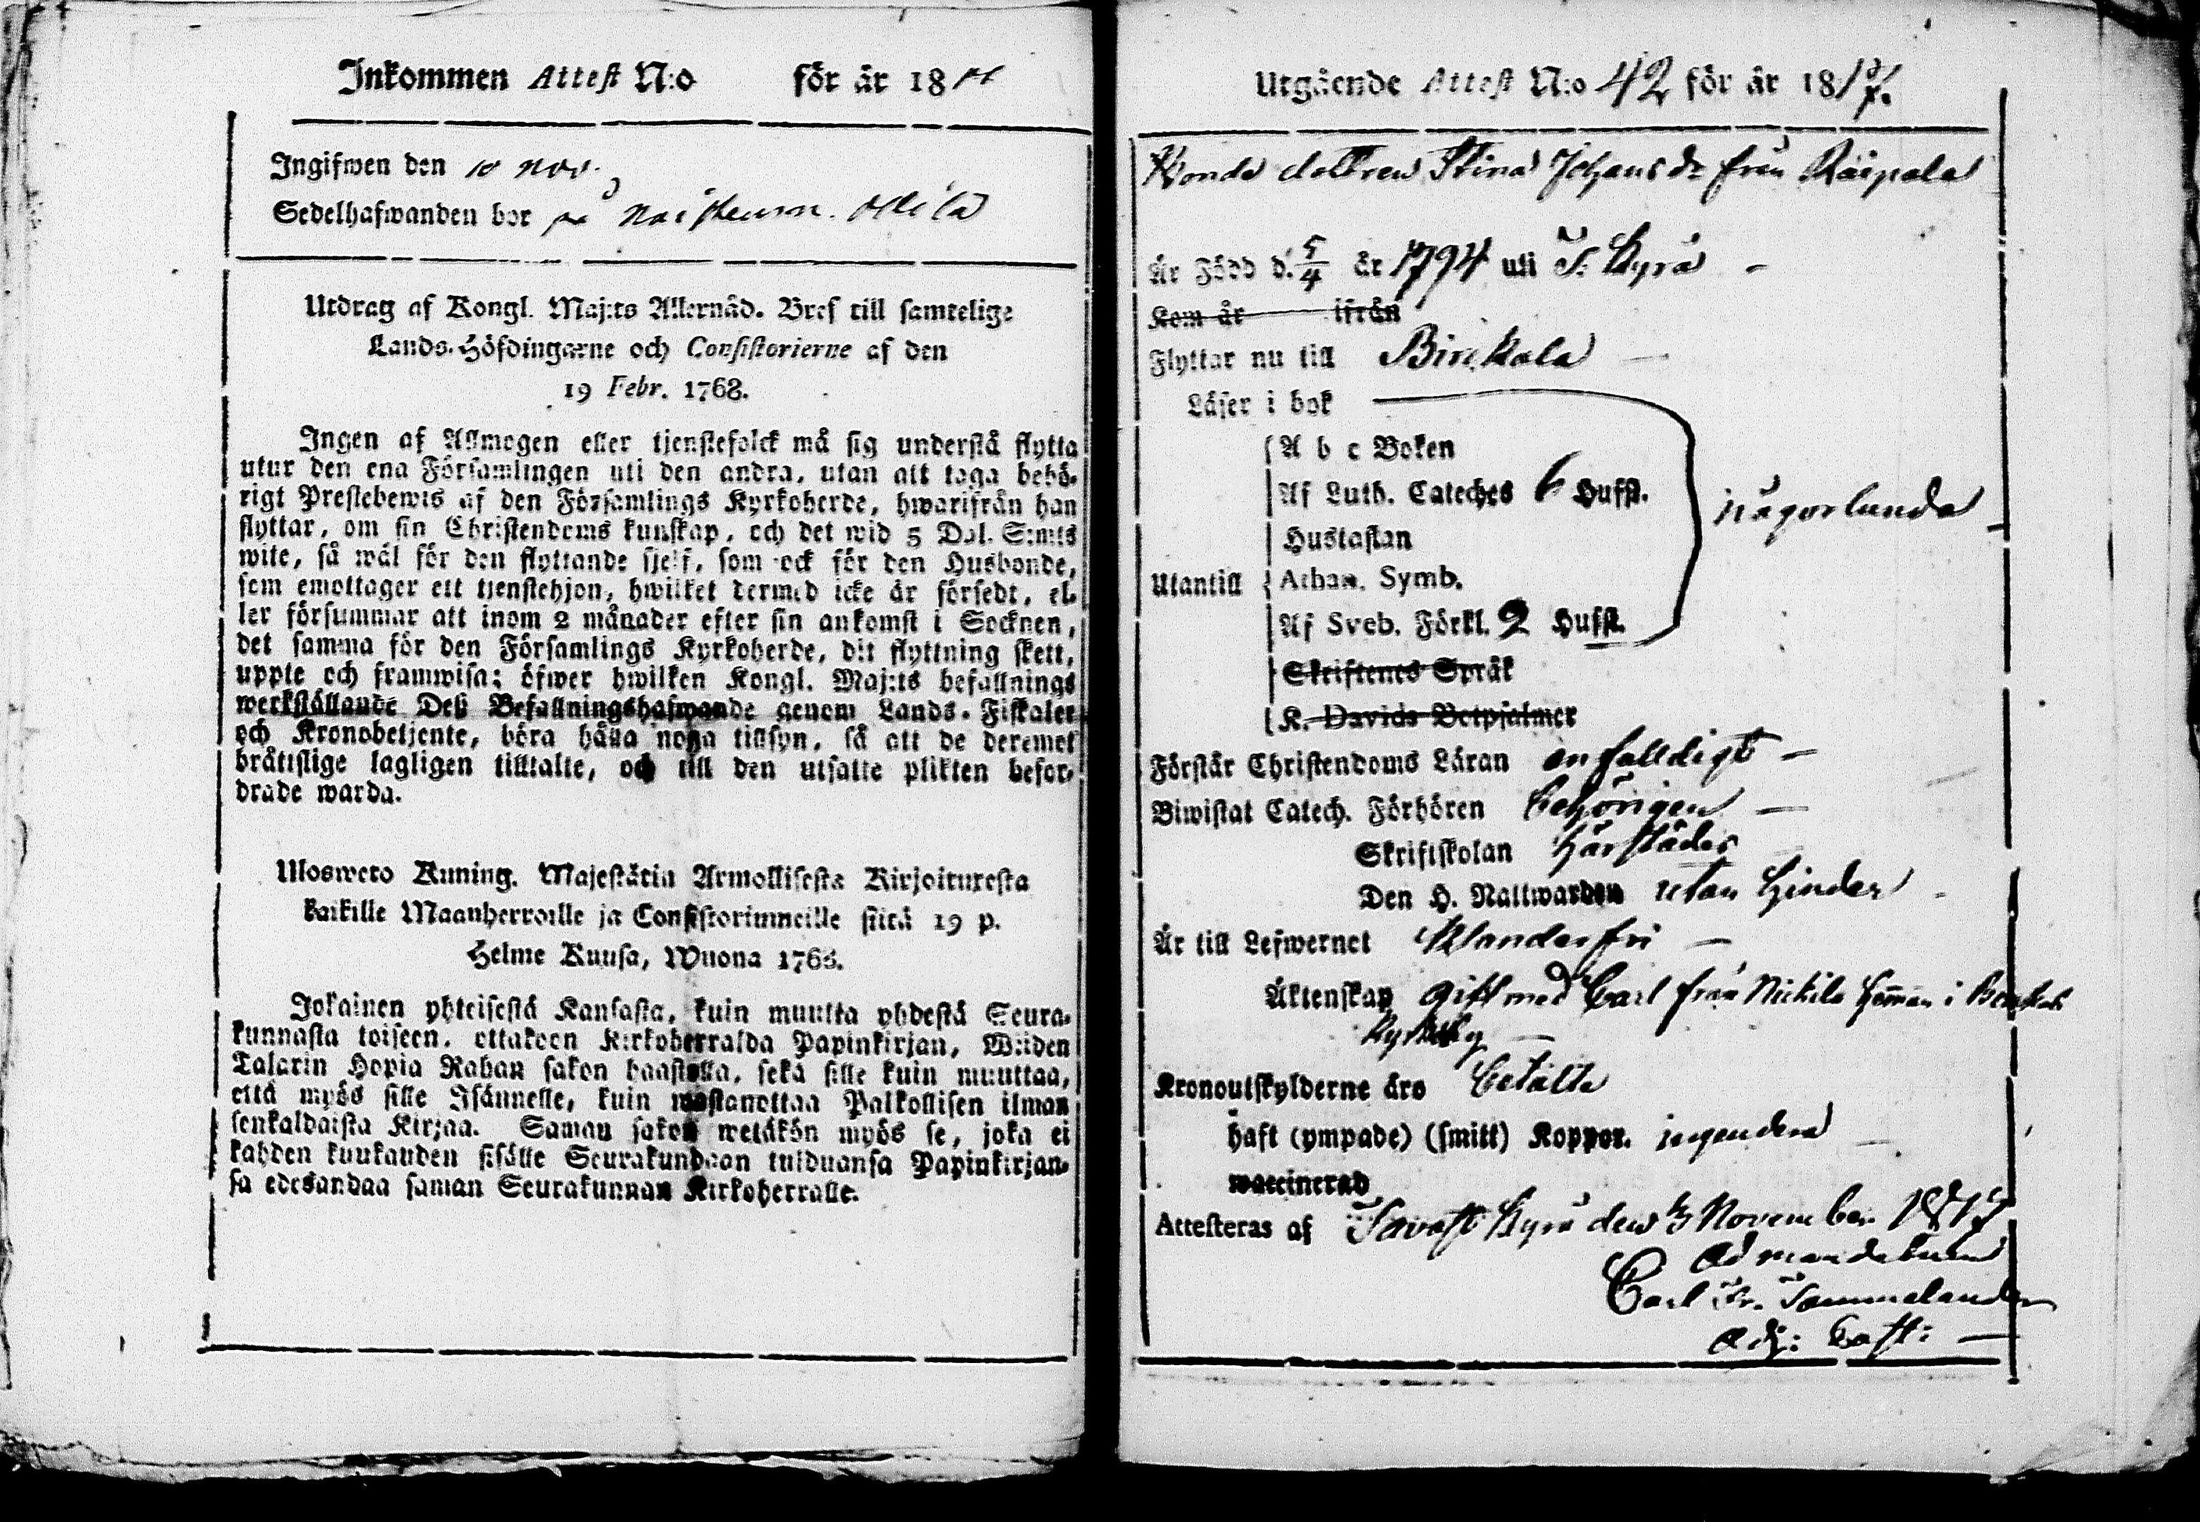 Inkommen Attest N:o för år 18
Ingifwen den 10 nov.
Sedelhafwanden bor på
Utdrag af Kongl. Maj:ts Allernåd. Bref till samtelige
Lands-Höfdingarne och Consistorierne af den
19 Febr. 1768.
Ingen af Allmogen eller tjenstefolck må sig understå flytta
utur den ena Församlingen uti den andra, utan att taga behö-
rigt Prestebewis af den Församlings Kyrkoherde, hwarifrån han
flyttar, om sin Christendoms kunskap, och det wid 5 Dal. S:mts
wite, så wäl för den flyttande sjelf, som ock för den Husbonde,
som emottager ett tjenstehjon, hwilket dermed icke är försedt, el-
ler försummar att inom 2 månader efter sin ankomst i Socknen,
det samma för den Församlings Kyrkoherde, dit flyttning skett,
uppte och framwisa; öfwer hwilken Kongl. Maj:ts befallnings
werkställande Deß Befallningshafwande genom Lands-Fiskaler
och Kronobetjente, böra hålla noga tillsyn, så att de deremot
bråttslige lagligen tilltalte, och till den utsatte plikten befor-
drade warda.
Ulosweto Kuning. Majestätin Armollisesta Kirjoituxesta
kaikille Maanherroille ja Consistoriumeille siitä 19 p.
Helme Kuusa, Wuona 1768.
Jokainen yhteisestä Kansasta, kuin muutta yhdestä Seura-
kunnasta toiseen, ottakoon Kirkoherralda Papinkirjan, Wiiden
Talarin Hopia Rahan sakon haastolla, sekä sille kuin muuttaa,
että myös sille Isännelle, kuin wastanottaa Palkollisen ilman
senkaldaista Kirjaa. Saman sakon wetäkön myös se, joka ei
kahden kuukauden sisälle Seurakundaan tulduansa Papinkirjan-
sa edesandaa saman Seurakunnan Kirkoherralle.
Utgående Attest N:o 42 för år 1817.
Bonde dottren Stina Johans dr från Räipälä
Är Född d. 5/4 år 1794 uti T. Kyrö
Kom år ifrån
Flyttar nu till Birckala
Läser i bok
A b c Boken
Af Luth. Cateches 6 Hufst.
någorlunda
Hustaflan
Utantill Athan. Symb.
Af Sveb. Förkl. 2 Hufst.
Skriftenes Språk
K. Davids Botpsalmer
Förstår Christendoms Läran enfalldigt
Biwistat Catech. Förhören behörigen
Skriftskolan härstädes
Den H. Nattwarden utan hinder
Är till Lefwernet Klanderfri
Äktenskap gift med Carl från Nickilä heman i
Kronoutskylderne äro betalte
haft (ympade) (smitt) Koppor. ingendera
waccinerad
Attesteras af Tavast Kyrö den November 1817
Ad mandatum
Carl Fr. Tammelander
Adj: